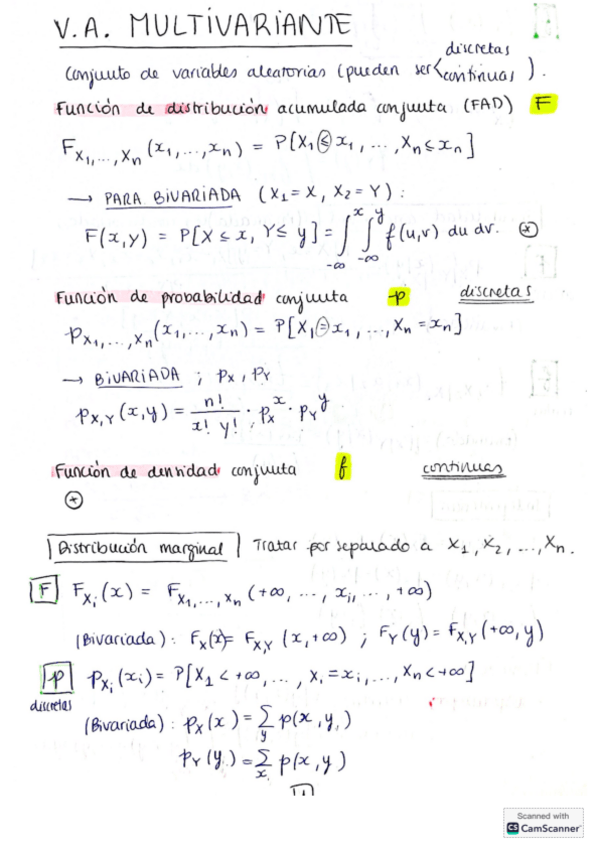 V.A. MULTIVARIANTE
Conjunto de variables aleatorias (pueden ser < discretas continuas ).
Función de distribución acumulada conjunta (FAD) F
F_{X_1,...,X_n} (x_1,...,x_n) = P[X_1 ≤ x_1, ..., X_n ≤ x_n]
→ PARA BIVARIADA (X_1 = X, X_2 = Y) :
F(x,y) = P[X ≤ x, Y ≤ y] = ∫_{-∞}^{x} ∫_{-∞}^{y} f(u,v) du dv. ⊛
Función de probabilidad conjunta p discretas
p_{X_1,...,X_n} (x_1,...,x_n) = P[X_1 = x_1, ..., X_n = x_n]
→ BIVARIADA ; p_X, p_Y
p_{X,Y} (x,y) = n!/(x! y!) · p_X^x · p_Y^y
Función de densidad conjunta f continuas
⊛
Distribución marginal Tratar por separado a X_1, X_2, ..., X_n.
F F_{X_i}(x) = F_{X_1,...,X_n} (+∞, ..., x_i, ..., +∞)
(Bivariada) : F_X(x) = F_{X,Y} (x,+∞) ; F_Y(y) = F_{X,Y}(+∞,y)
p p_{X_i}(x_i) = P[X_1 < +∞, ..., X_i = x_i, ..., X_n < +∞]
discretas
(Bivariada) : p_X(x) = Σ_y p(x,y)
p_Y(y) = Σ_x p(x,y)
Scanned with
CS CamScanner